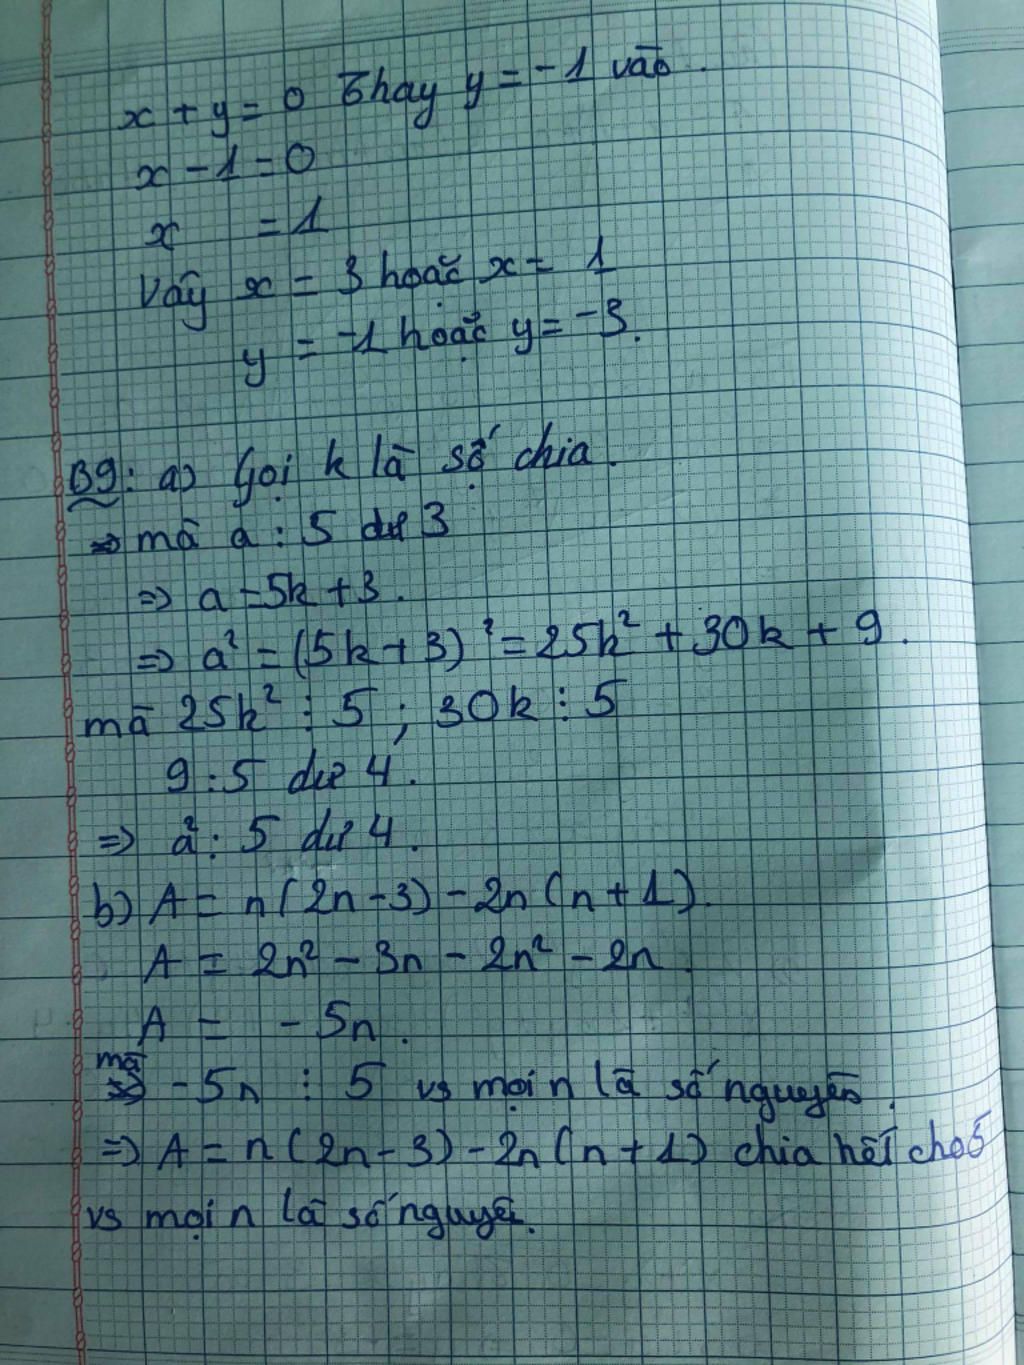 x + y = 0 Thay y = -1 vào.
x - 1 = 0
x = 1
Vậy x = 3 hoặc x = 1
y = -1 hoặc y = -3.
B9: a) Gọi k là số chia.
mà a : 5 dư 3
=> a = 5k + 3.
=> a² = (5k + 3)² = 25k² + 30k + 9.
mà 25k² ⋮ 5 ; 30k ⋮ 5
9 : 5 dư 4.
=> a² : 5 dư 4.
b) A = n(2n - 3) - 2n(n + 1).
A = 2n² - 3n - 2n² - 2n.
A = - 5n.
mà -5n ⋮ 5 vs mọi n là số nguyên.
=> A = n(2n - 3) - 2n(n + 1) chia hết cho 5
vs mọi n là số nguyên.